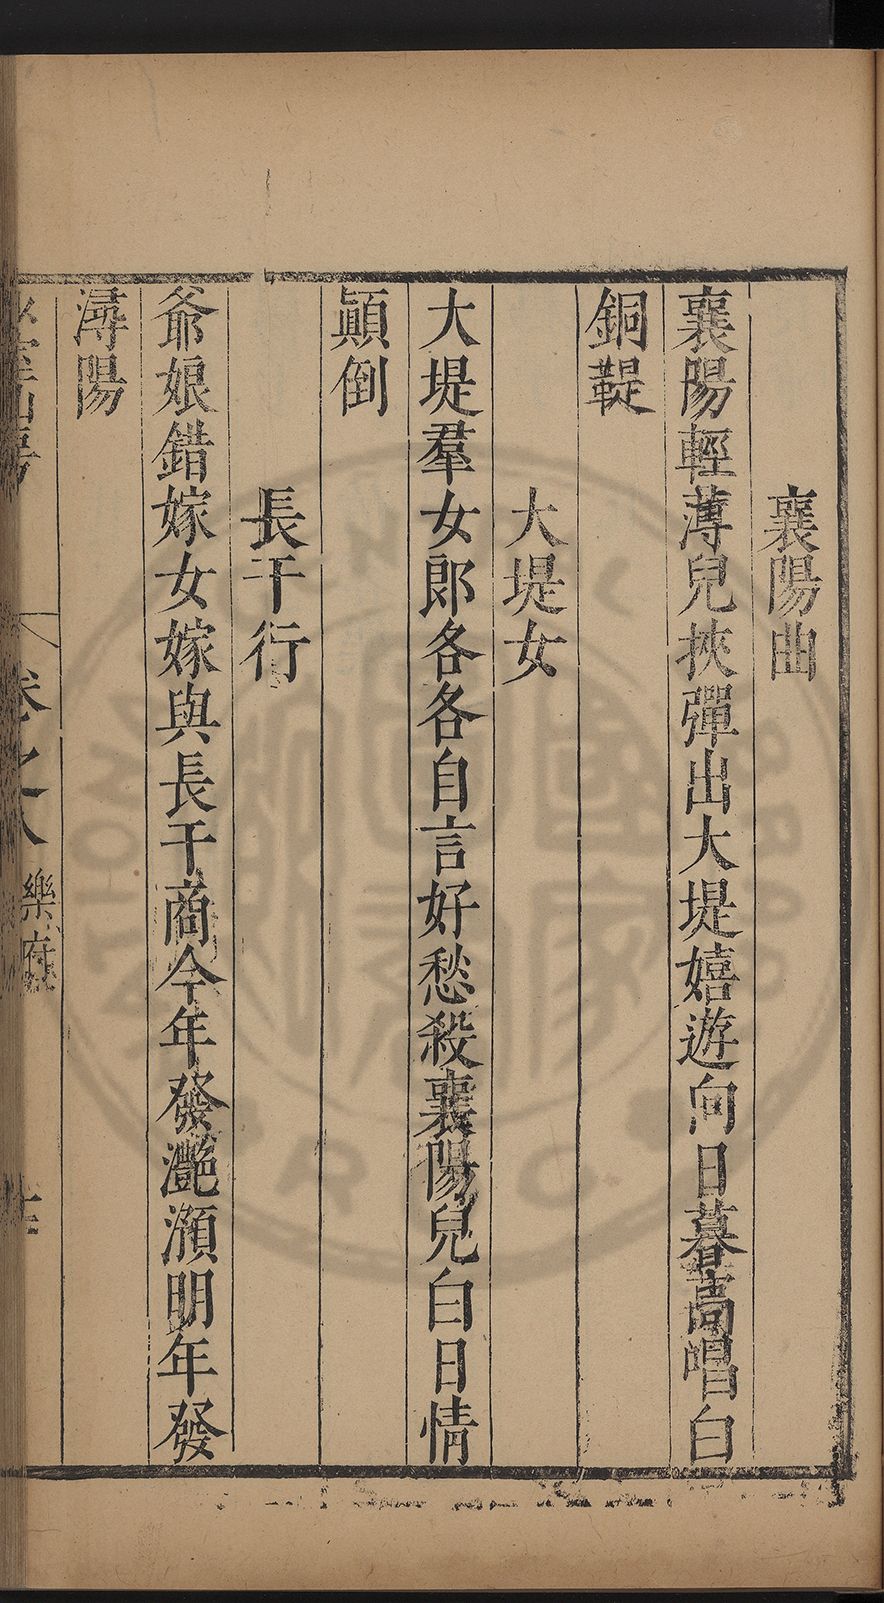 襄陽曲
襄陽輕薄兒挾彈出大堤嬉遊向日暮高唱白
銅鞮
大堤女
大堤羣女郎各各自言好愁殺襄陽兒白日情
顚倒
長干行
爺娘錯嫁女嫁與長干商今年發灧澦明年發
潯陽
卷之八 樂府